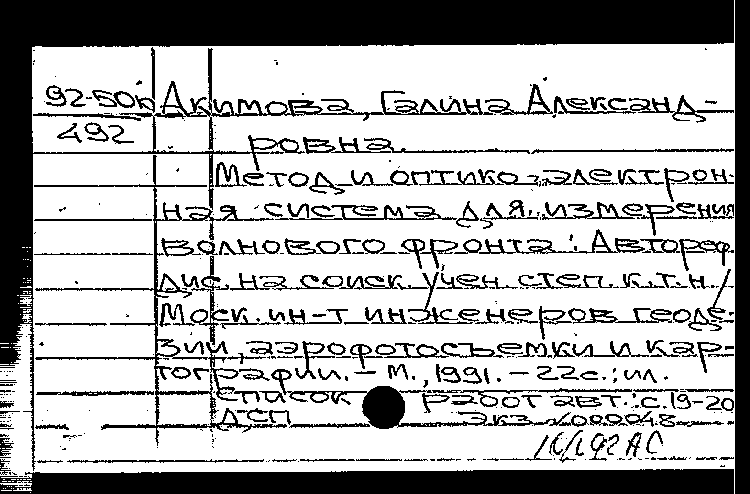 92-50к Акимова, Галина Александ-
492 ровна.
Метод и оптико-электрон-
ная система для измерения
волнового фронта : Автореф.
дис. на соиск. учен. степ. к.т.н. /
Моск. ин-т инженеров геоде-
зии, аэрофотосъемки и кар-
тографии. - М., 1991. - 22с.; ил.
Список работ авт.: с.19-20
ДСП Экз. №000048